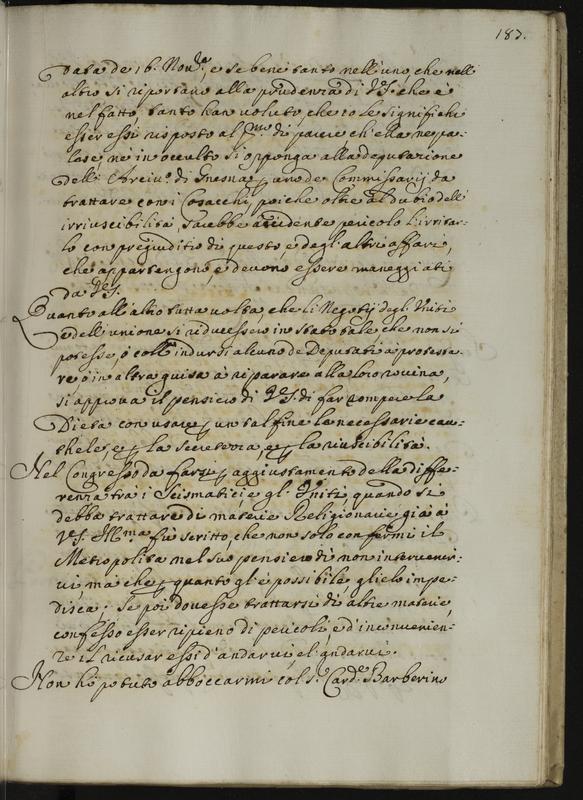 183.
data de 16. Nou.e, e se bene tanto nell'uno, che nell'
altro si riportano alla prudenza di V.S. che è
nel fatto, tanto han voluto, che io le significhi
esser essi risposto al di parere ch'ella ne pa-
lese nè in occulto si opponga alla deputazione
dell' Arciu.o di Gnesna p uno de Commissarij da
trattare con i Cosacchi, poiche oltre al dubio dell'
irriuscibilità, sarebbe euidente pericolo l'irritar-
lo con pregiuditio di questo, e degl'altri affari,
che appartengono, e deuono essere maneggiati
da V.S.
Quanto all'altro tutta uolta, che li Negotij degl'Vniti
e dell'unione si riducessero in stato tale che non si
potesse, ò indursi alcuno de Deputati à protesta-
re ò in altra guisa à riparare alla loro rouina,
si approua il pensiero di V.S. di far rompere la
Dieta con usare p un tal fine le necessarie cau-
thele, e p la secretezza, e p la riuscibilità.
Nel Congresso da farsi p aggiustamento della diffe-
renza tra i Scismatici e gl'Vniti, quando si
debba trattare di materie Religionarie già à
V.S. Ill.ma fù scritto, che non solo confermi il
Metropolita nel suo pensiero di non interuenir-
ui, mà che p quanto gl'è possibile, glielo impe-
disca; Se poi douesse trattarsi di altre materie,
confesso esser ripieno di pericoli, e d'inconuenien-
te il ricusar essi d'andarui, e l'andarui.
Non hò potuto abboccarmi col S.r Card.e Barberino